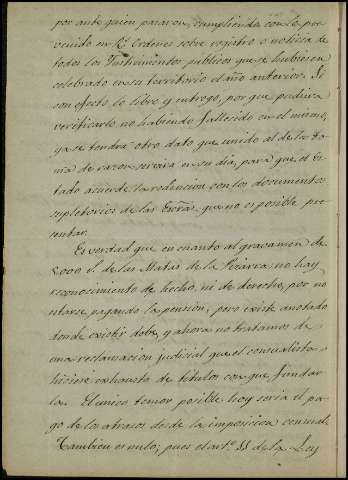 por ante quien pararon, cumpliendo con lo pre-
venido en Rs Ordenes sobre registro o noticia de
todos los Instrumentos publicos que se hubiesen
celebrado en su territorio el año anterior. Si
con efecto lo libro y entregó, por que pudiera
verificarlo no habiendo fallecido en el mismo,
ya se tendra otro dato que unido al de la to-
ma de razon servira en su dia, para que el Es-
tado acuerde la redencion con los documentos
supletorios de las que no es posible pre-
sentar.
Es verdad que en cuanto al gravamen de
de las Matas de la Pizarra no hay
reconocimiento de hecho, ni de derecho, por no
estarse pagando la pension; pero existe anotado
donde existir debe, y ahora no tratamos de
una reclamacion judicial que el censualista
hiciere exhausto de titulos con que fundar-
la. El unico temor posible hoy seria el pa-
go de los atrasos desde la imposicion censual.
Tambien es nulo; pues el artº 11 de la Ley